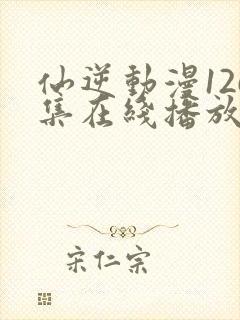 仙逆動漫12
集在綫播放
宋仁宗